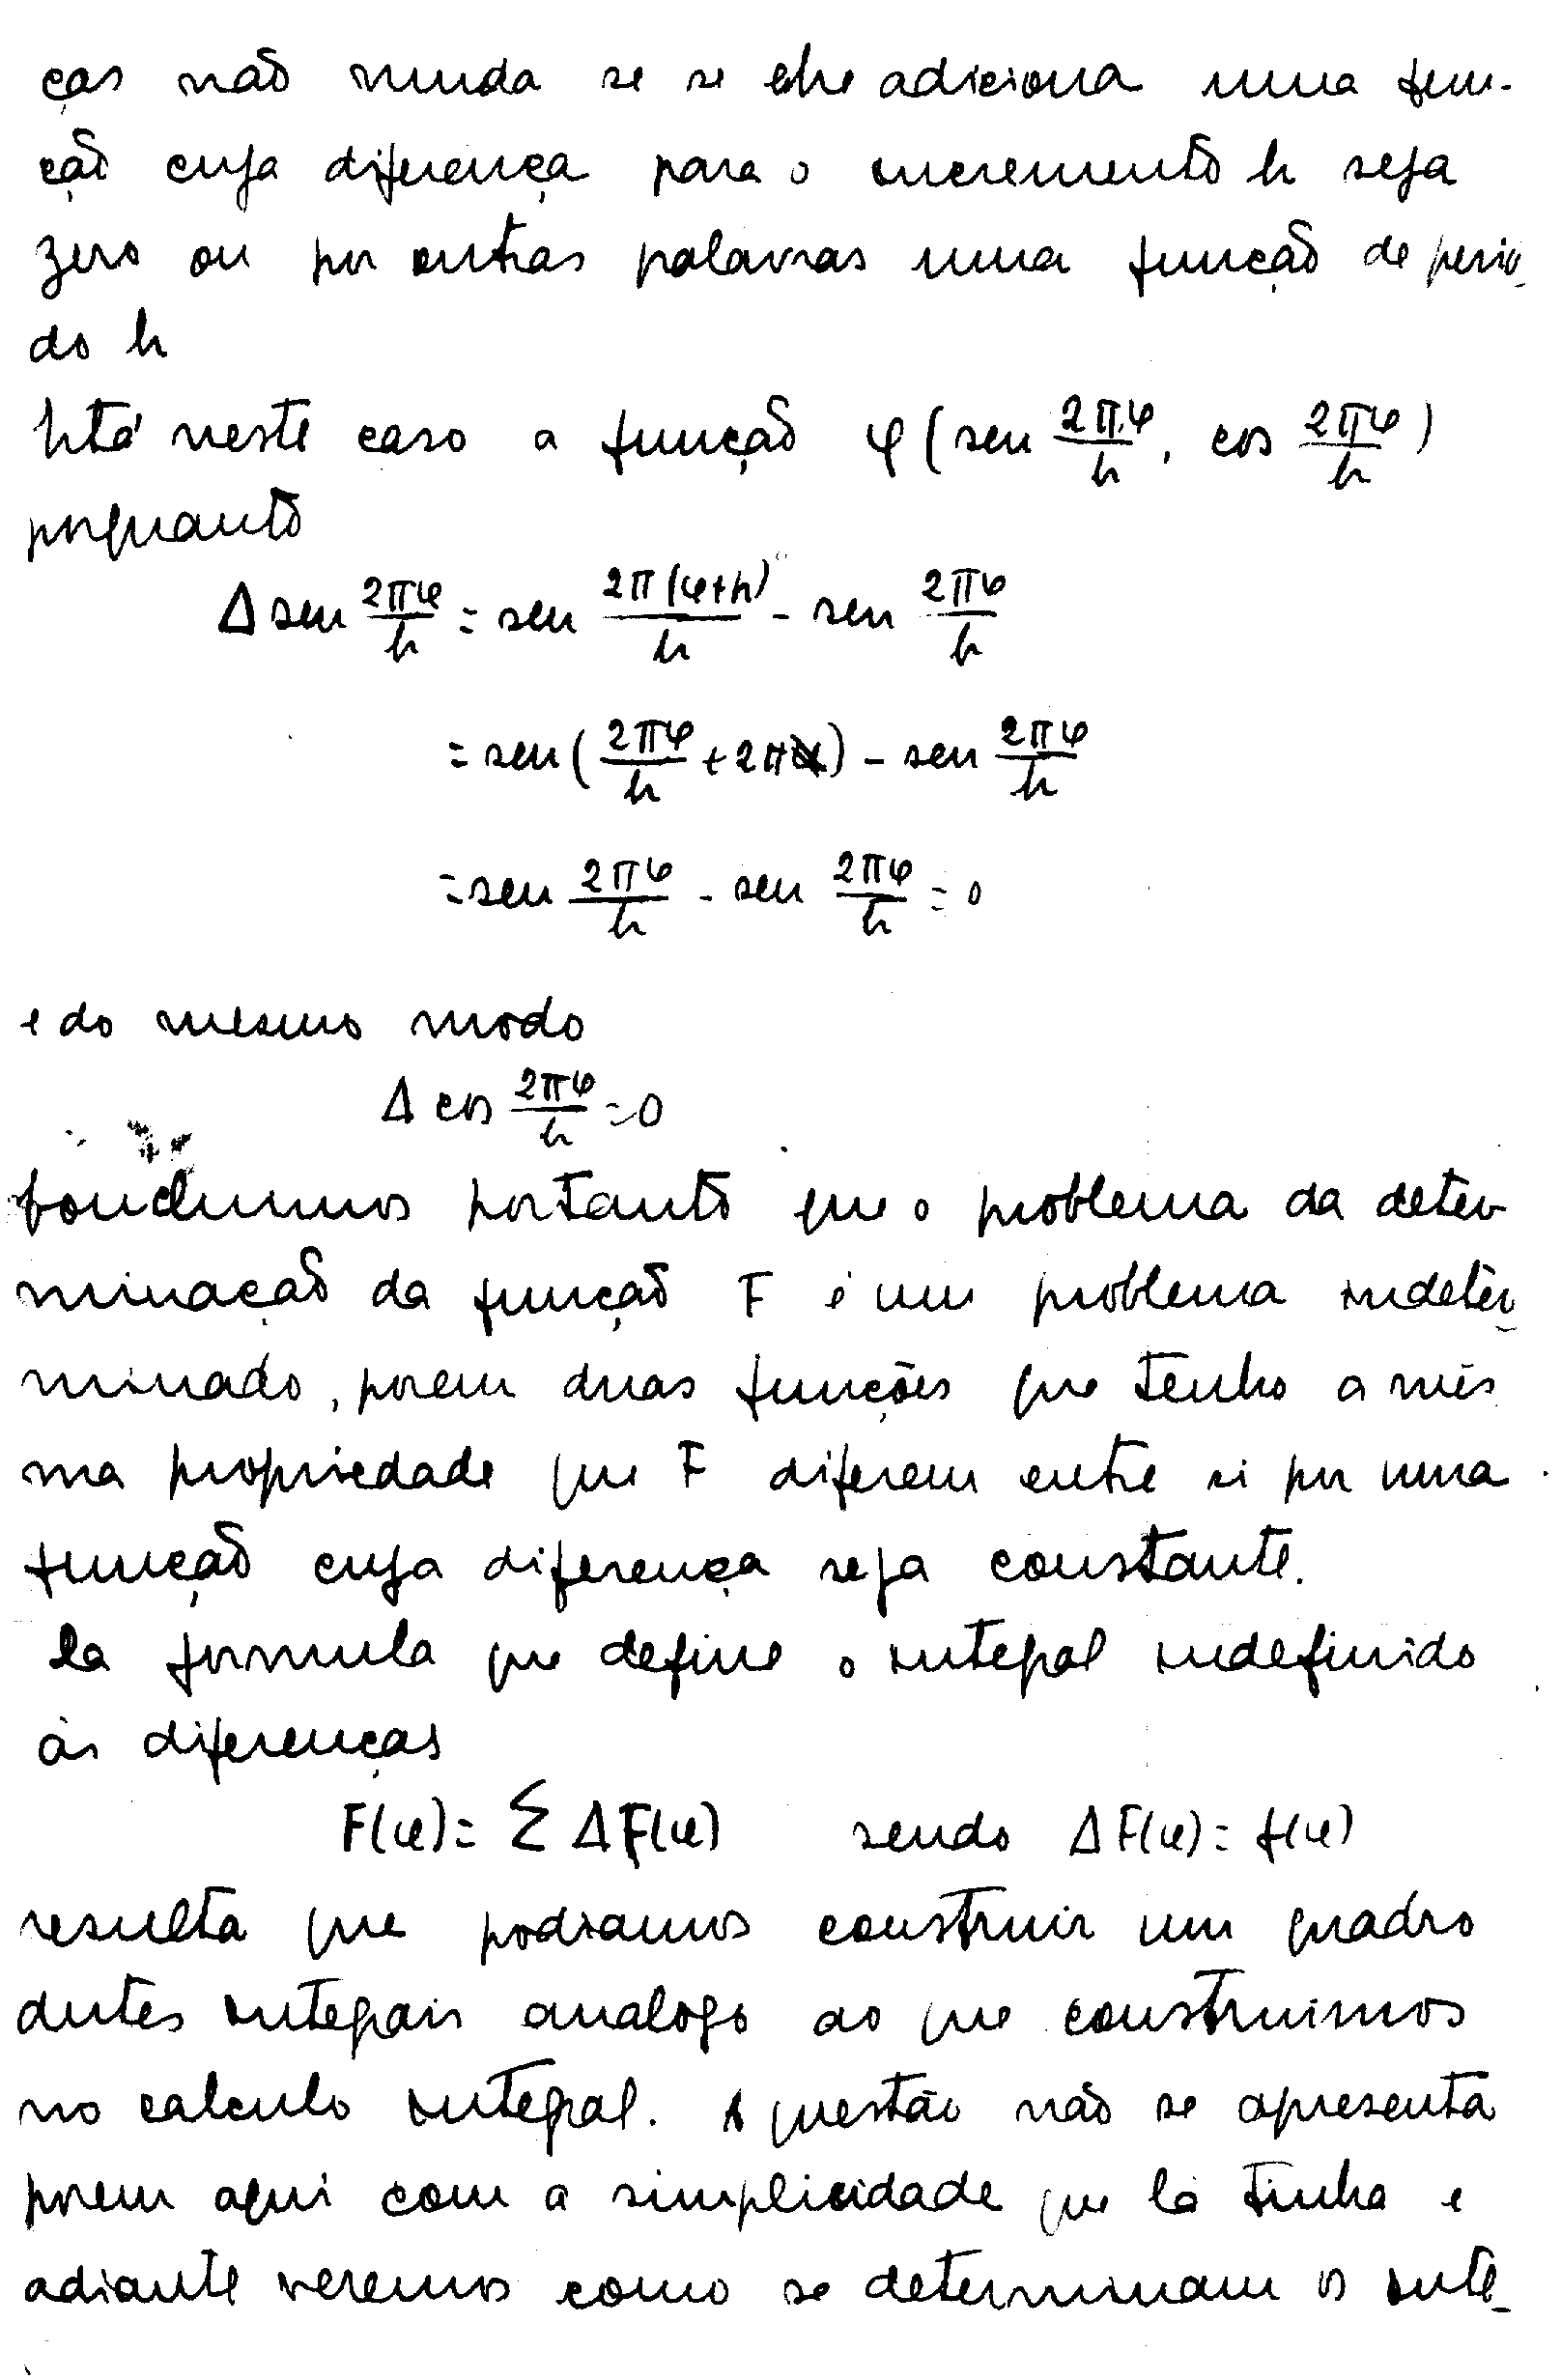 ças não muda se se lhe adiciona uma fun-
ção cuja diferença para o incremento h seja
zero ou por outras palavras uma função de perio-
do h
Está neste caso a função φ ( sen 2πφ/h , cos 2πφ/h )
porquanto
Δ sen 2πφ/h = sen 2π(φ+h)/h - sen 2πφ/h
= sen ( 2πφ/h + 2π ) - sen 2πφ/h
= sen 2πφ/h - sen 2πφ/h = 0
e do mesmo modo
Δ cos 2πφ/h = 0
Concluimos portanto que o problema da deter-
minação da função F é um problema indeter-
minado, porem duas funções que tenho a mes
ma propriedade que F diferem entre si por uma
função cuja diferença seja constante.
Da formula que define o integral indefinido
ás diferenças
F(φ) = Σ ΔF(φ) sendo ΔF(φ) = f(φ)
resulta que podiamos construir um quadro
destes integrais analogo ao que construimos
no calculo integral. A questão não se apresenta
porem aqui com a simplicidade que lá tinha e
adiante veremos como se determinam os inte-